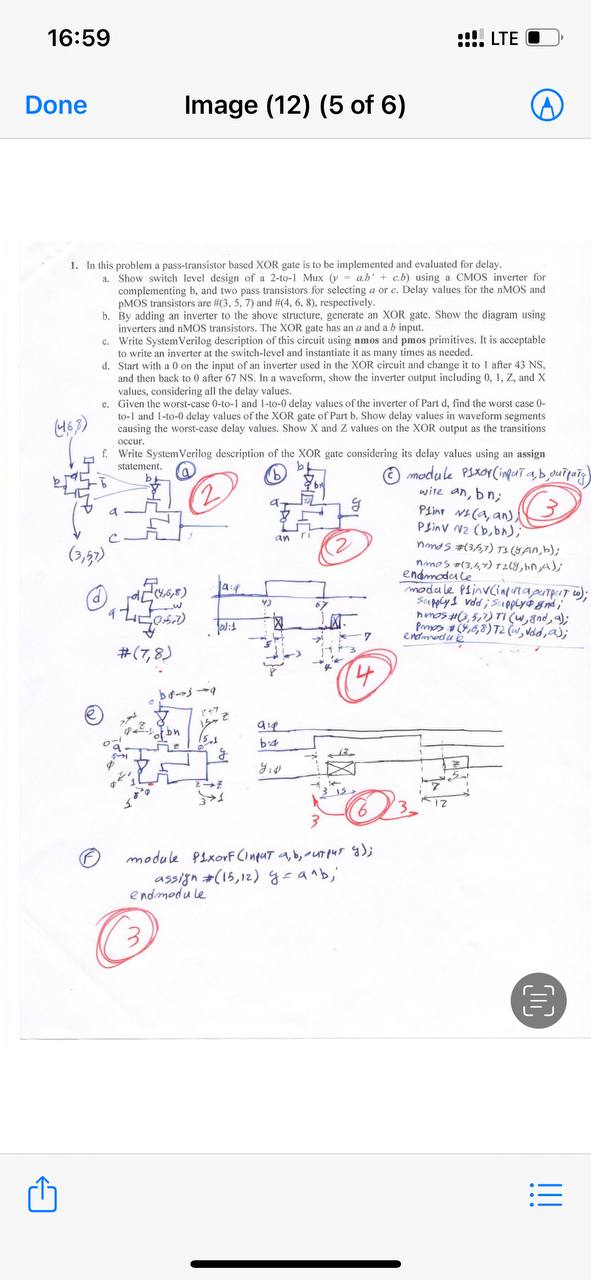 16:59
LTE
Done
Image (12) (5 of 6)
1. In this problem a pass-transistor based XOR gate is to be implemented and evaluated for delay.
a. Show switch level design of a 2-to-1 Mux (y = a.b' + c.b) using a CMOS inverter for
complementing b, and two pass transistors for selecting a or c. Delay values for the nMOS and
pMOS transistors are #(3, 5, 7) and #(4, 6, 8), respectively.
b. By adding an inverter to the above structure, generate an XOR gate. Show the diagram using
inverters and nMOS transistors. The XOR gate has an a and a b input.
c. Write SystemVerilog description of this circuit using nmos and pmos primitives. It is acceptable
to write an inverter at the switch-level and instantiate it as many times as needed.
d. Start with a 0 on the input of an inverter used in the XOR circuit and change it to 1 after 43 NS,
and then back to 0 after 67 NS. In a waveform, show the inverter output including 0, 1, Z, and X
values, considering all the delay values.
e. Given the worst-case 0-to-1 and 1-to-0 delay values of the inverter of Part d, find the worst case 0-
to-1 and 1-to-0 delay values of the XOR gate of Part b. Show delay values in waveform segments
causing the worst-case delay values. Show X and Z values on the XOR output as the transitions
occur.
f. Write SystemVerilog description of the XOR gate considering its delay values using an assign
statement.
(4,6,8)
b
b̄
(3,5,7)
(a)
b
a
c
2
(b)
b
bn
a
y
an
T1
2
(c) module P1xor(input a,b,output y)
wire an, bn;
P1inv N1(a,an);
P1inv N2(b,bn);
nmos #(3,5,7) T1(y,an,b);
nmos #(3,5,7) T2(y,bn,a);
endmodule
module P1inv(input a,output w);
supply1 vdd; supply0 gnd;
nmos #(3,5,7) T1(w,gnd,a);
pmos #(4,6,8) T2(w,vdd,a);
endmodule
3
(d)
a
(4,6,8)
w
(3,5,7)
#(7,8)
a:0
43
67
w:1
5
3
8
4
3
7
4
(e)
bn
a
y
a:0
b:0
y:0
12
3 15
Z
5
7
12
3
6
3
(F) module P1xorF(input a,b,output y);
assign #(15,12) y = a^b;
endmodule
3